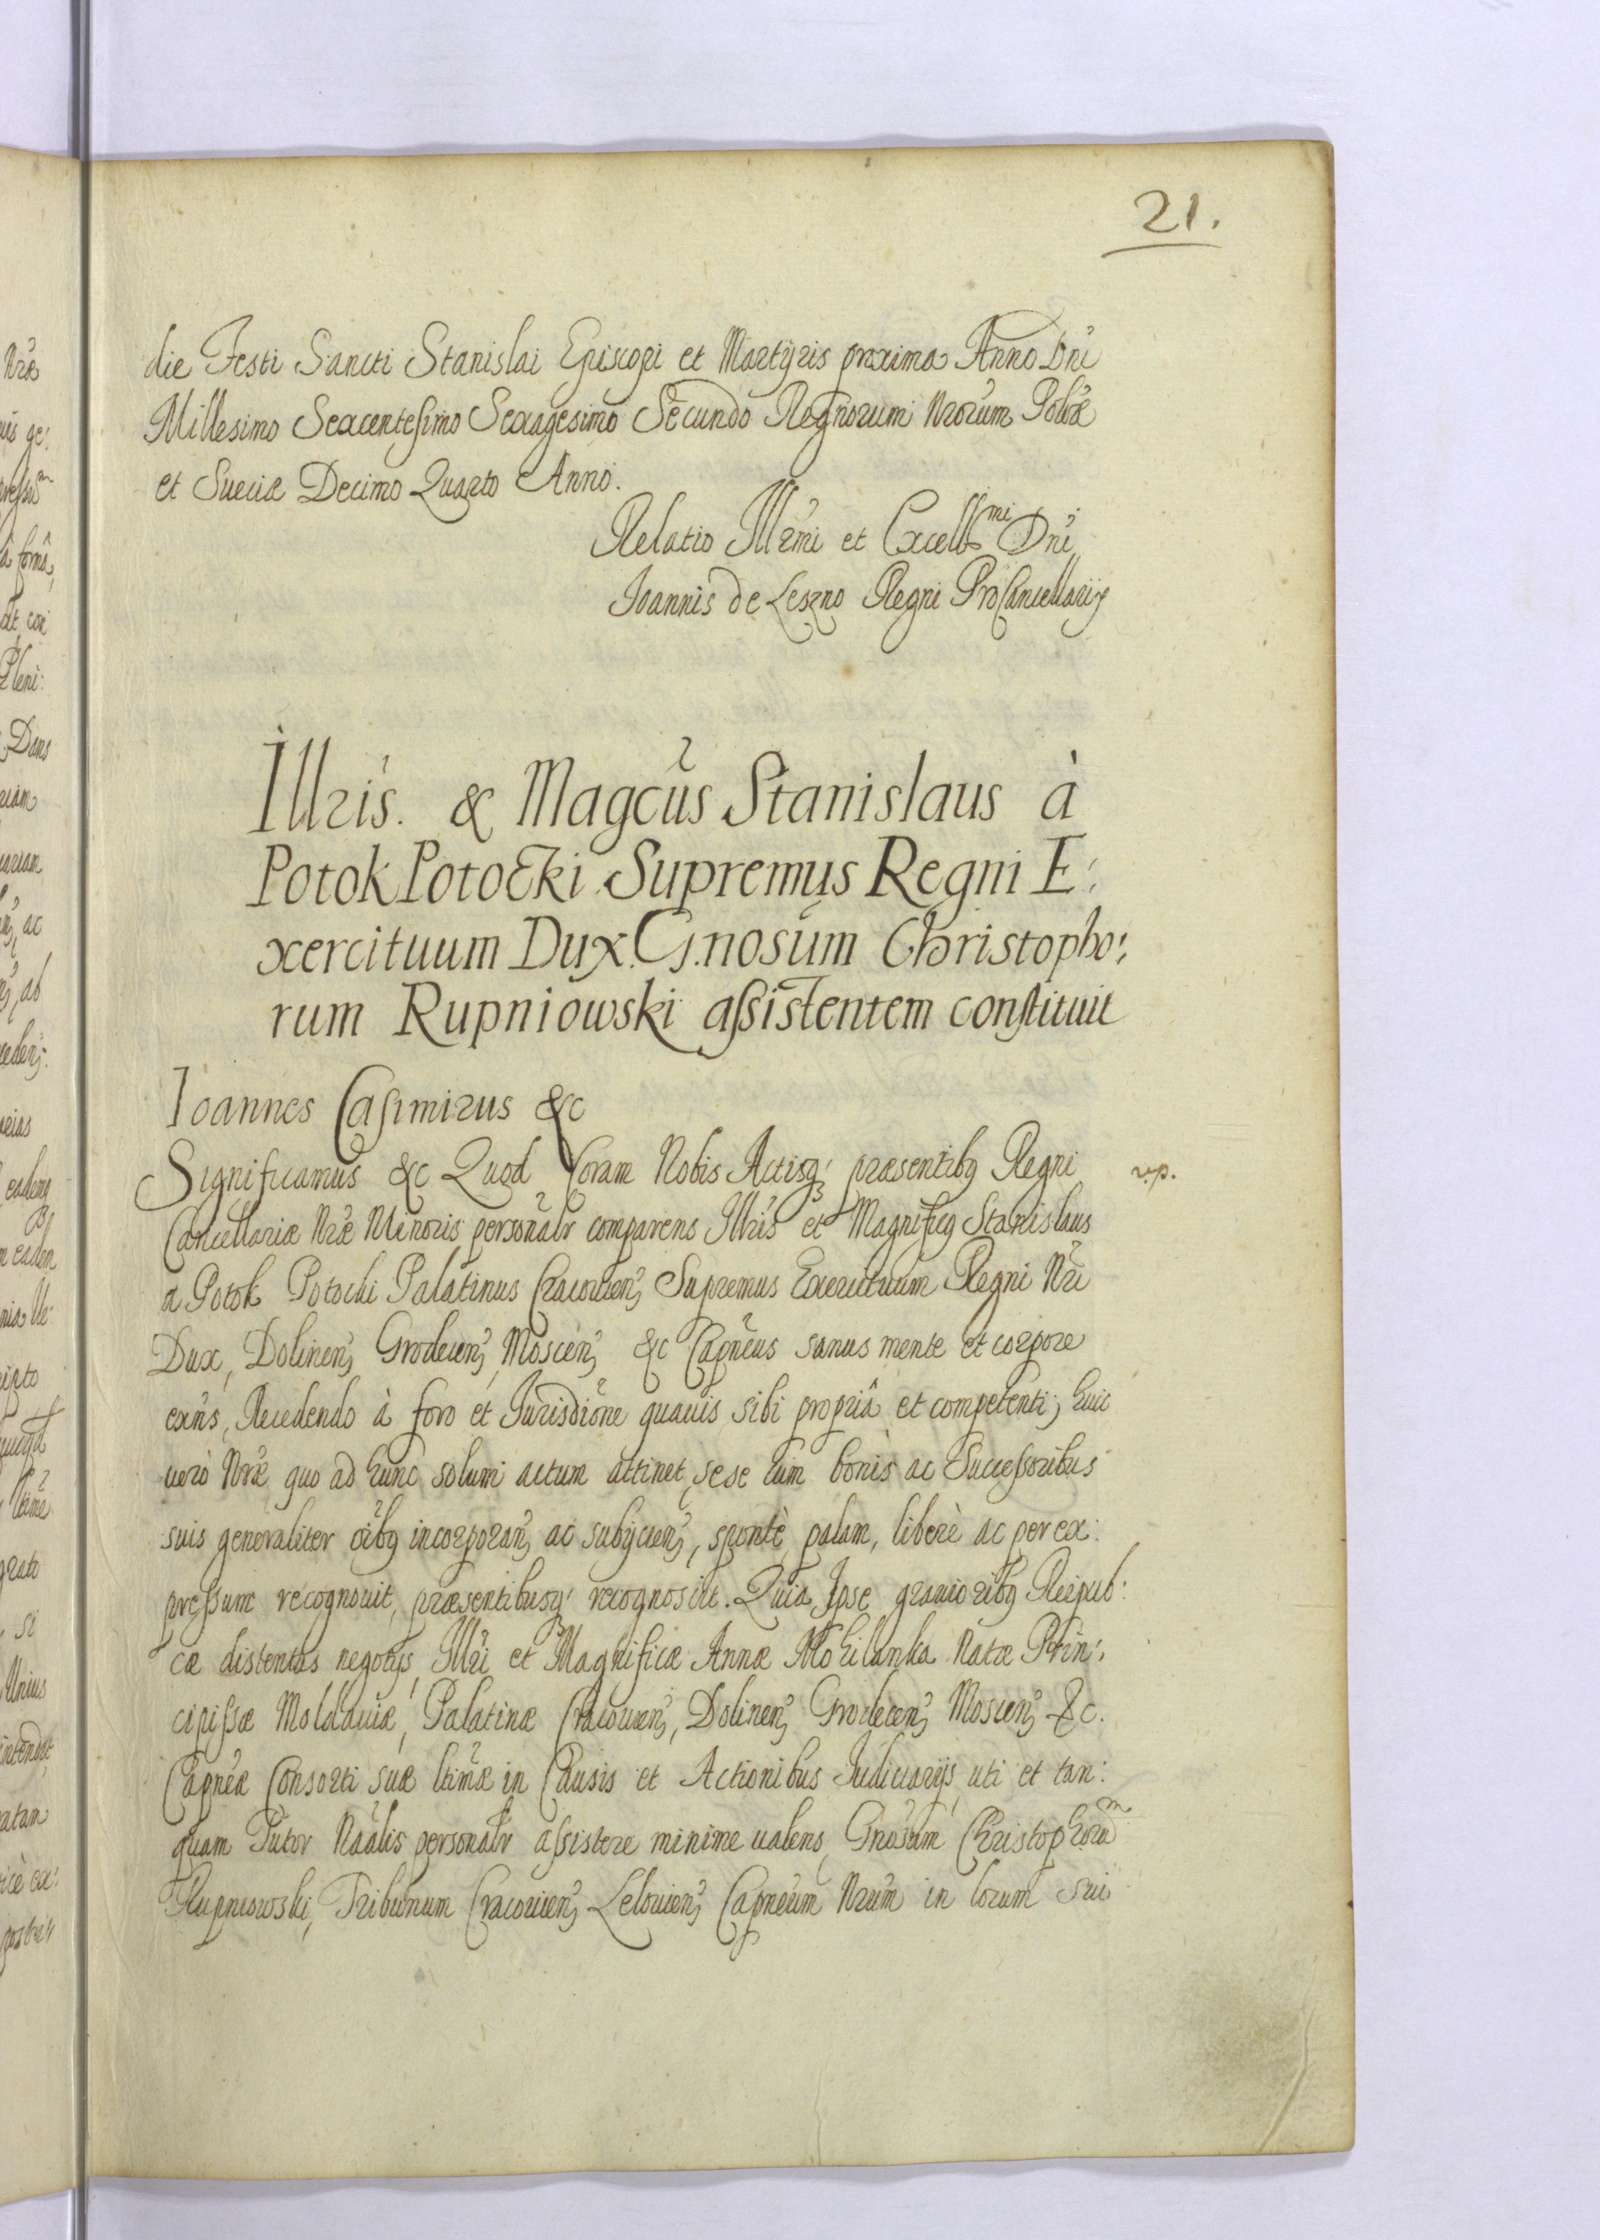 21.
die Festi Sancti Stanislai Episcopi et Martyris proxima Anno Dni
Millesimo Sexcentesimo Sexagesimo Secundo Regnorum Nrorum Polõæ
et Sueciæ Decimo Quarto Anno.
Relatio Illrmi et Excellmi Dni
Joannis de Leszno Regni ProCancellarij
Illris. & Magcus Stanislaus à
Potok Potocki Supremus Regni E:
xercituum Dux. G.nosum Christopho:
rum Rupniowski assistentem constituit
Ioannes Casimirus &c
Significamus &c Quod Coram Nobis Actisq; præsentibq Regni
r.p.
Cancellariæ Nræ Minoris personalr comparens Illris et Magnificq Stanislaus
a Potok Potocki Palatinus Cracovien, Supremus Exercituum Regni Nri
Dux, Dolinen, Grodecen, Moscen, &c Capneus sanus mente et corpore
exns, Recedendo à foro et Jurisdione quavis sibi propriâ et competenti; huic
uerò Nræ quo ad hunc solum actum attinet, sese cum bonis ac Successoribus
suis generaliter oibq incorporan, ac subijcien, spontè palam, liberè ac per ex:
pressum recognouit, præsentibusq; recognoscit. Quia Ipse grauioribq Reipub:
cæ distentus negotijs, Illri et Magnificæ Annæ Mohilanka Natæ Prin:
cipissæ Moldauiæ, Palatinæ Cracovien, Dolinen, Grodecen, Moscen, &c.
Capneæ Consorti suæ ltimæ in Causis et Actionibus Judiciarijs, uti et tan:
quam Tutor Naalis personalr assistere minime ualens, Gnosum Christophorum
Rupniowski, Tribunum Cracovien, Lelouien, Capneum Nrum in locum sui